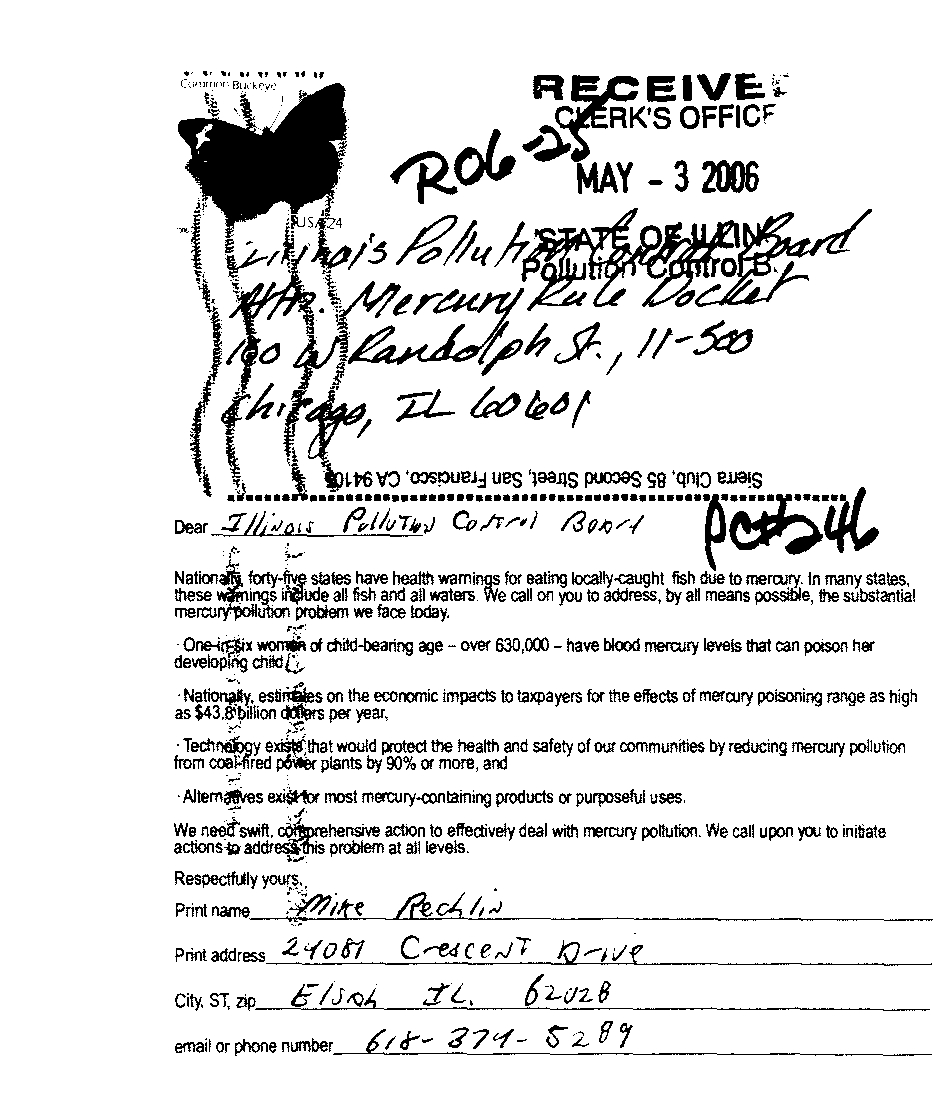 Common Buckeye
USA 24
RECEIVE
CLERK'S OFFICE
R06-25
MAY - 3 2006
STATE OF ILLIN
Pollution Control B.
Illinois Pollution Control Board
Attn. Mercury Rule Docket
100 W Randolph St., 11-500
Chicago, IL 60601
Sierra Club, 85 Second Street, San Francisco, CA 94105
Dear Illinois Pollution Control Board
PC#246
Nationally, forty-five states have health warnings for eating locally-caught fish due to mercury. In many states,
these warnings include all fish and all waters. We call on you to address, by all means possible, the substantial
mercury pollution problem we face today.
· One-in-six women of child-bearing age – over 630,000 – have blood mercury levels that can poison her
developing child
· Nationally, estimates on the economic impacts to taxpayers for the effects of mercury poisoning range as high
as $43.8 billion dollars per year,
· Technology exists that would protect the health and safety of our communities by reducing mercury pollution
from coal-fired power plants by 90% or more, and
· Alternatives exist for most mercury-containing products or purposeful uses.
We need swift, comprehensive action to effectively deal with mercury pollution. We call upon you to initiate
actions to address this problem at all levels.
Respectfully yours,
Print name Mike Rechlin
Print address 24081 Crescent Drive
City, ST, zip Elsah IL. 62028
email or phone number 618-374-5289